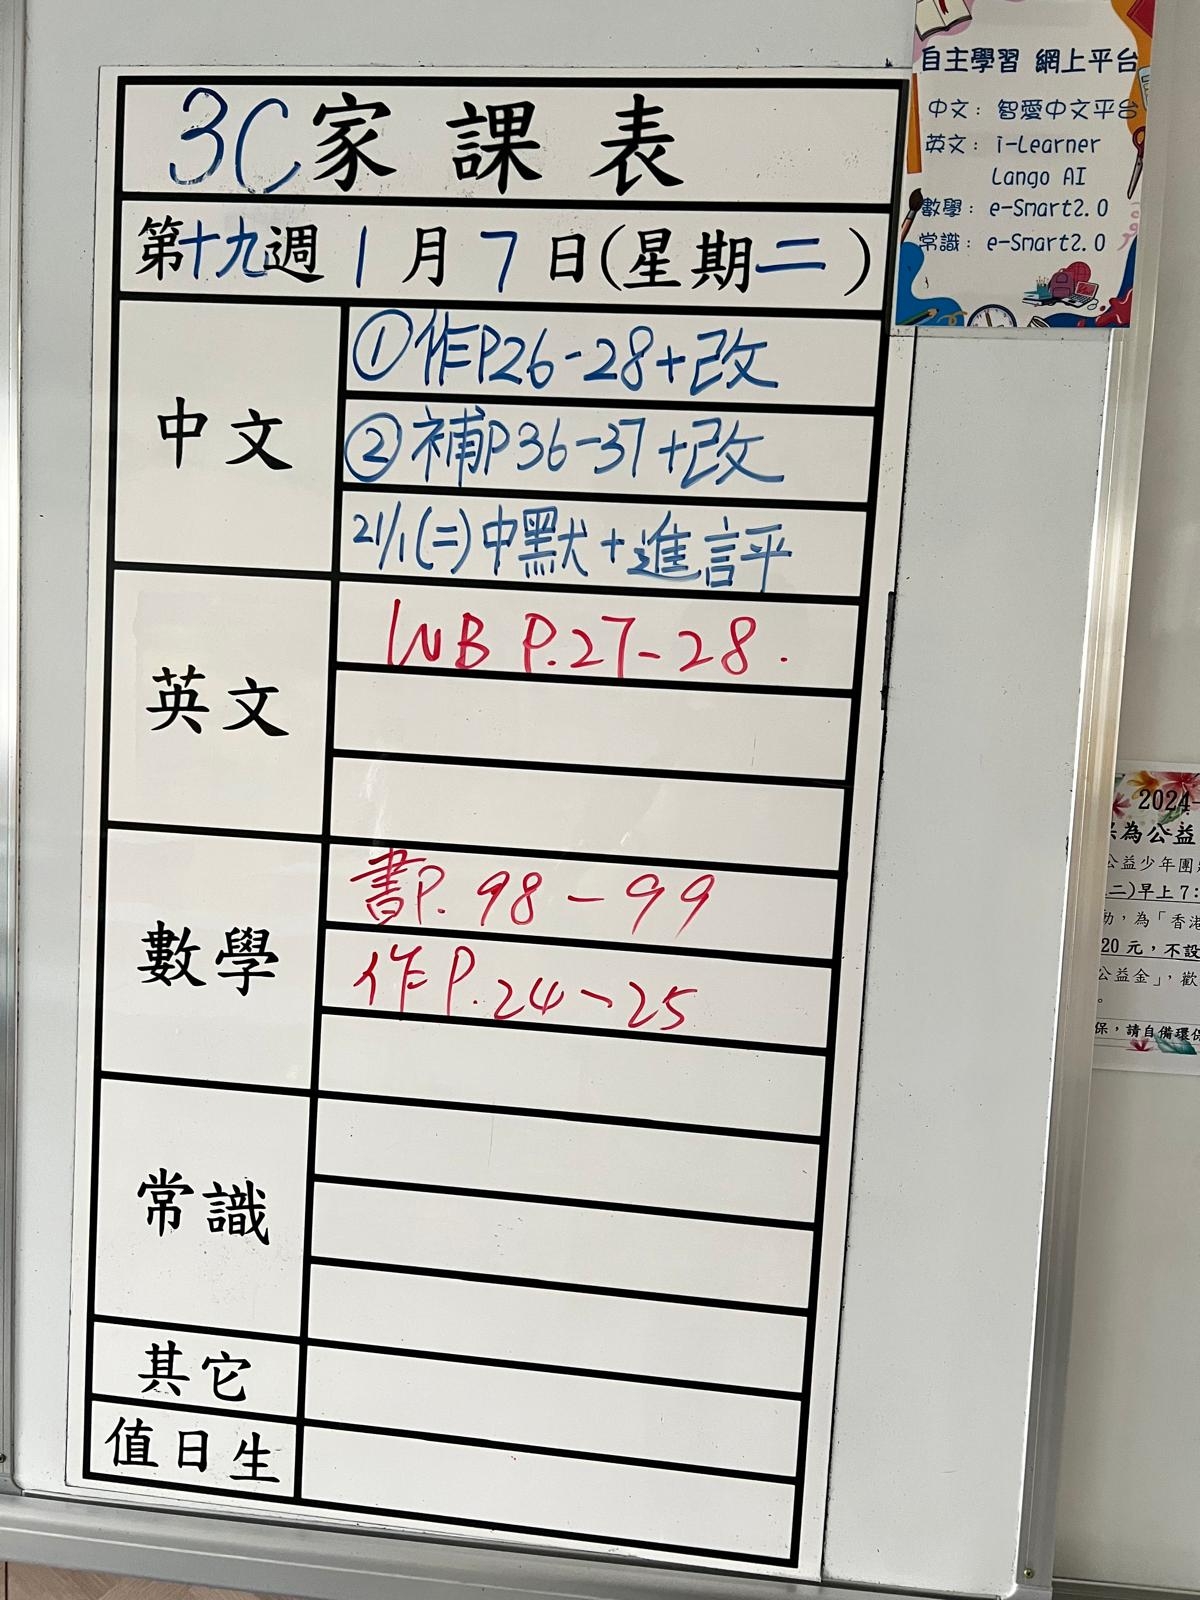 3C家課表
第十九週 1月7日(星期二)
中文
①作P26-28+改
②補P36-37+改
21/1(二)中默+進評
英文
WB P.27-28.
數學
書P.98-99
作P.24-25
常識
其它
值日生
自主學習 網上平台
中文: 智愛中文平台
英文: i-Learner
Lango AI
數學: e-Smart2.0
常識: e-Smart2.0
2024-
為公益
公益少年團
二)早上7:
動，為「香港
20元，不設
公益金」，歡
。
保，請自備環保